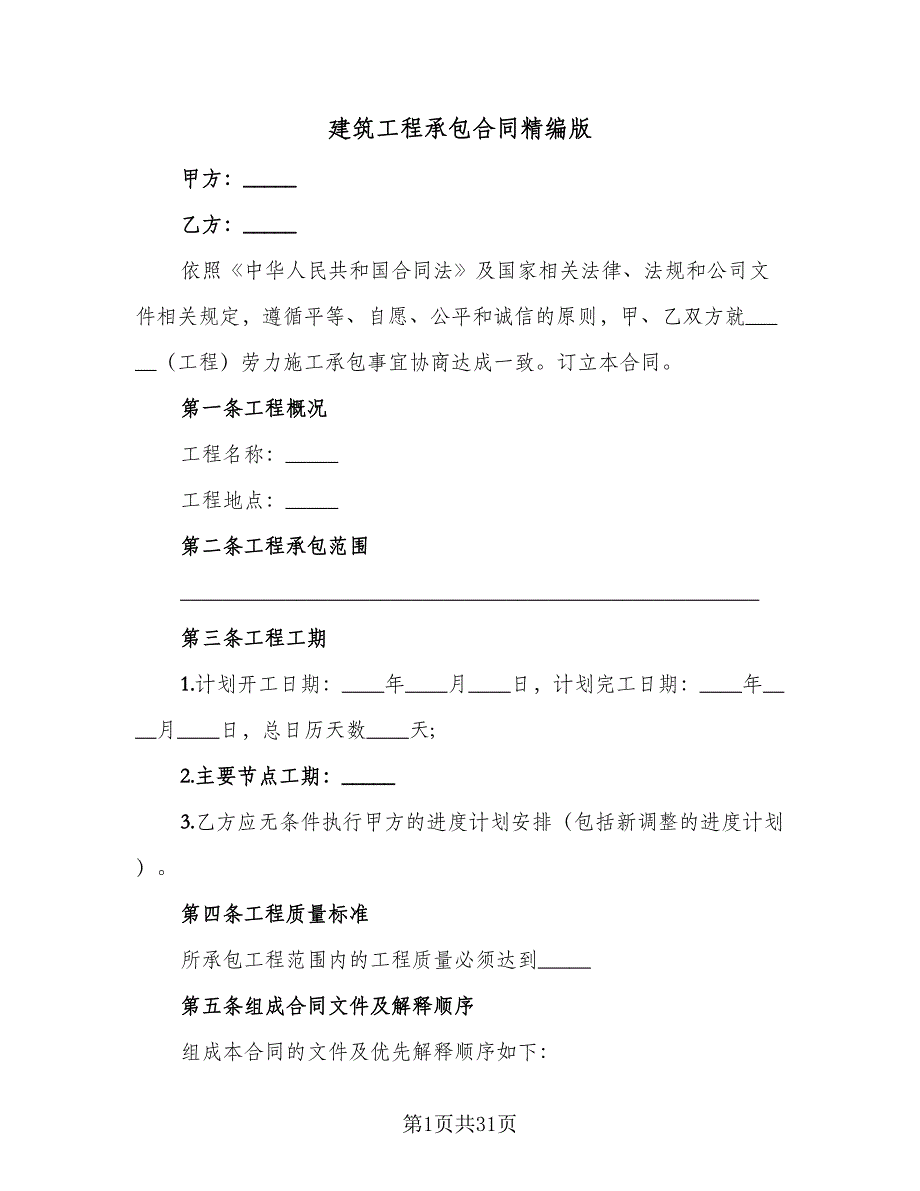 建筑工程承包合同精编版
甲方：_____
乙方：_____
依照《中华人民共和国合同法》及国家相关法律、法规和公司文
件相关规定，遵循平等、自愿、公平和诚信的原则，甲、乙双方就___
__（工程）劳力施工承包事宜协商达成一致。订立本合同。
第一条工程概况
工程名称：_____
工程地点：_____
第二条工程承包范围
_______________________________________________________
第三条工程工期
1.计划开工日期：____年____月____日，计划完工日期：____年__
__月____日，总日历天数____天;
2.主要节点工期：_____
3.乙方应无条件执行甲方的进度计划安排（包括新调整的进度计划
）。
第四条工程质量标准
所承包工程范围内的工程质量必须达到_____
第五条组成合同文件及解释顺序
组成本合同的文件及优先解释顺序如下：
第1页共31页